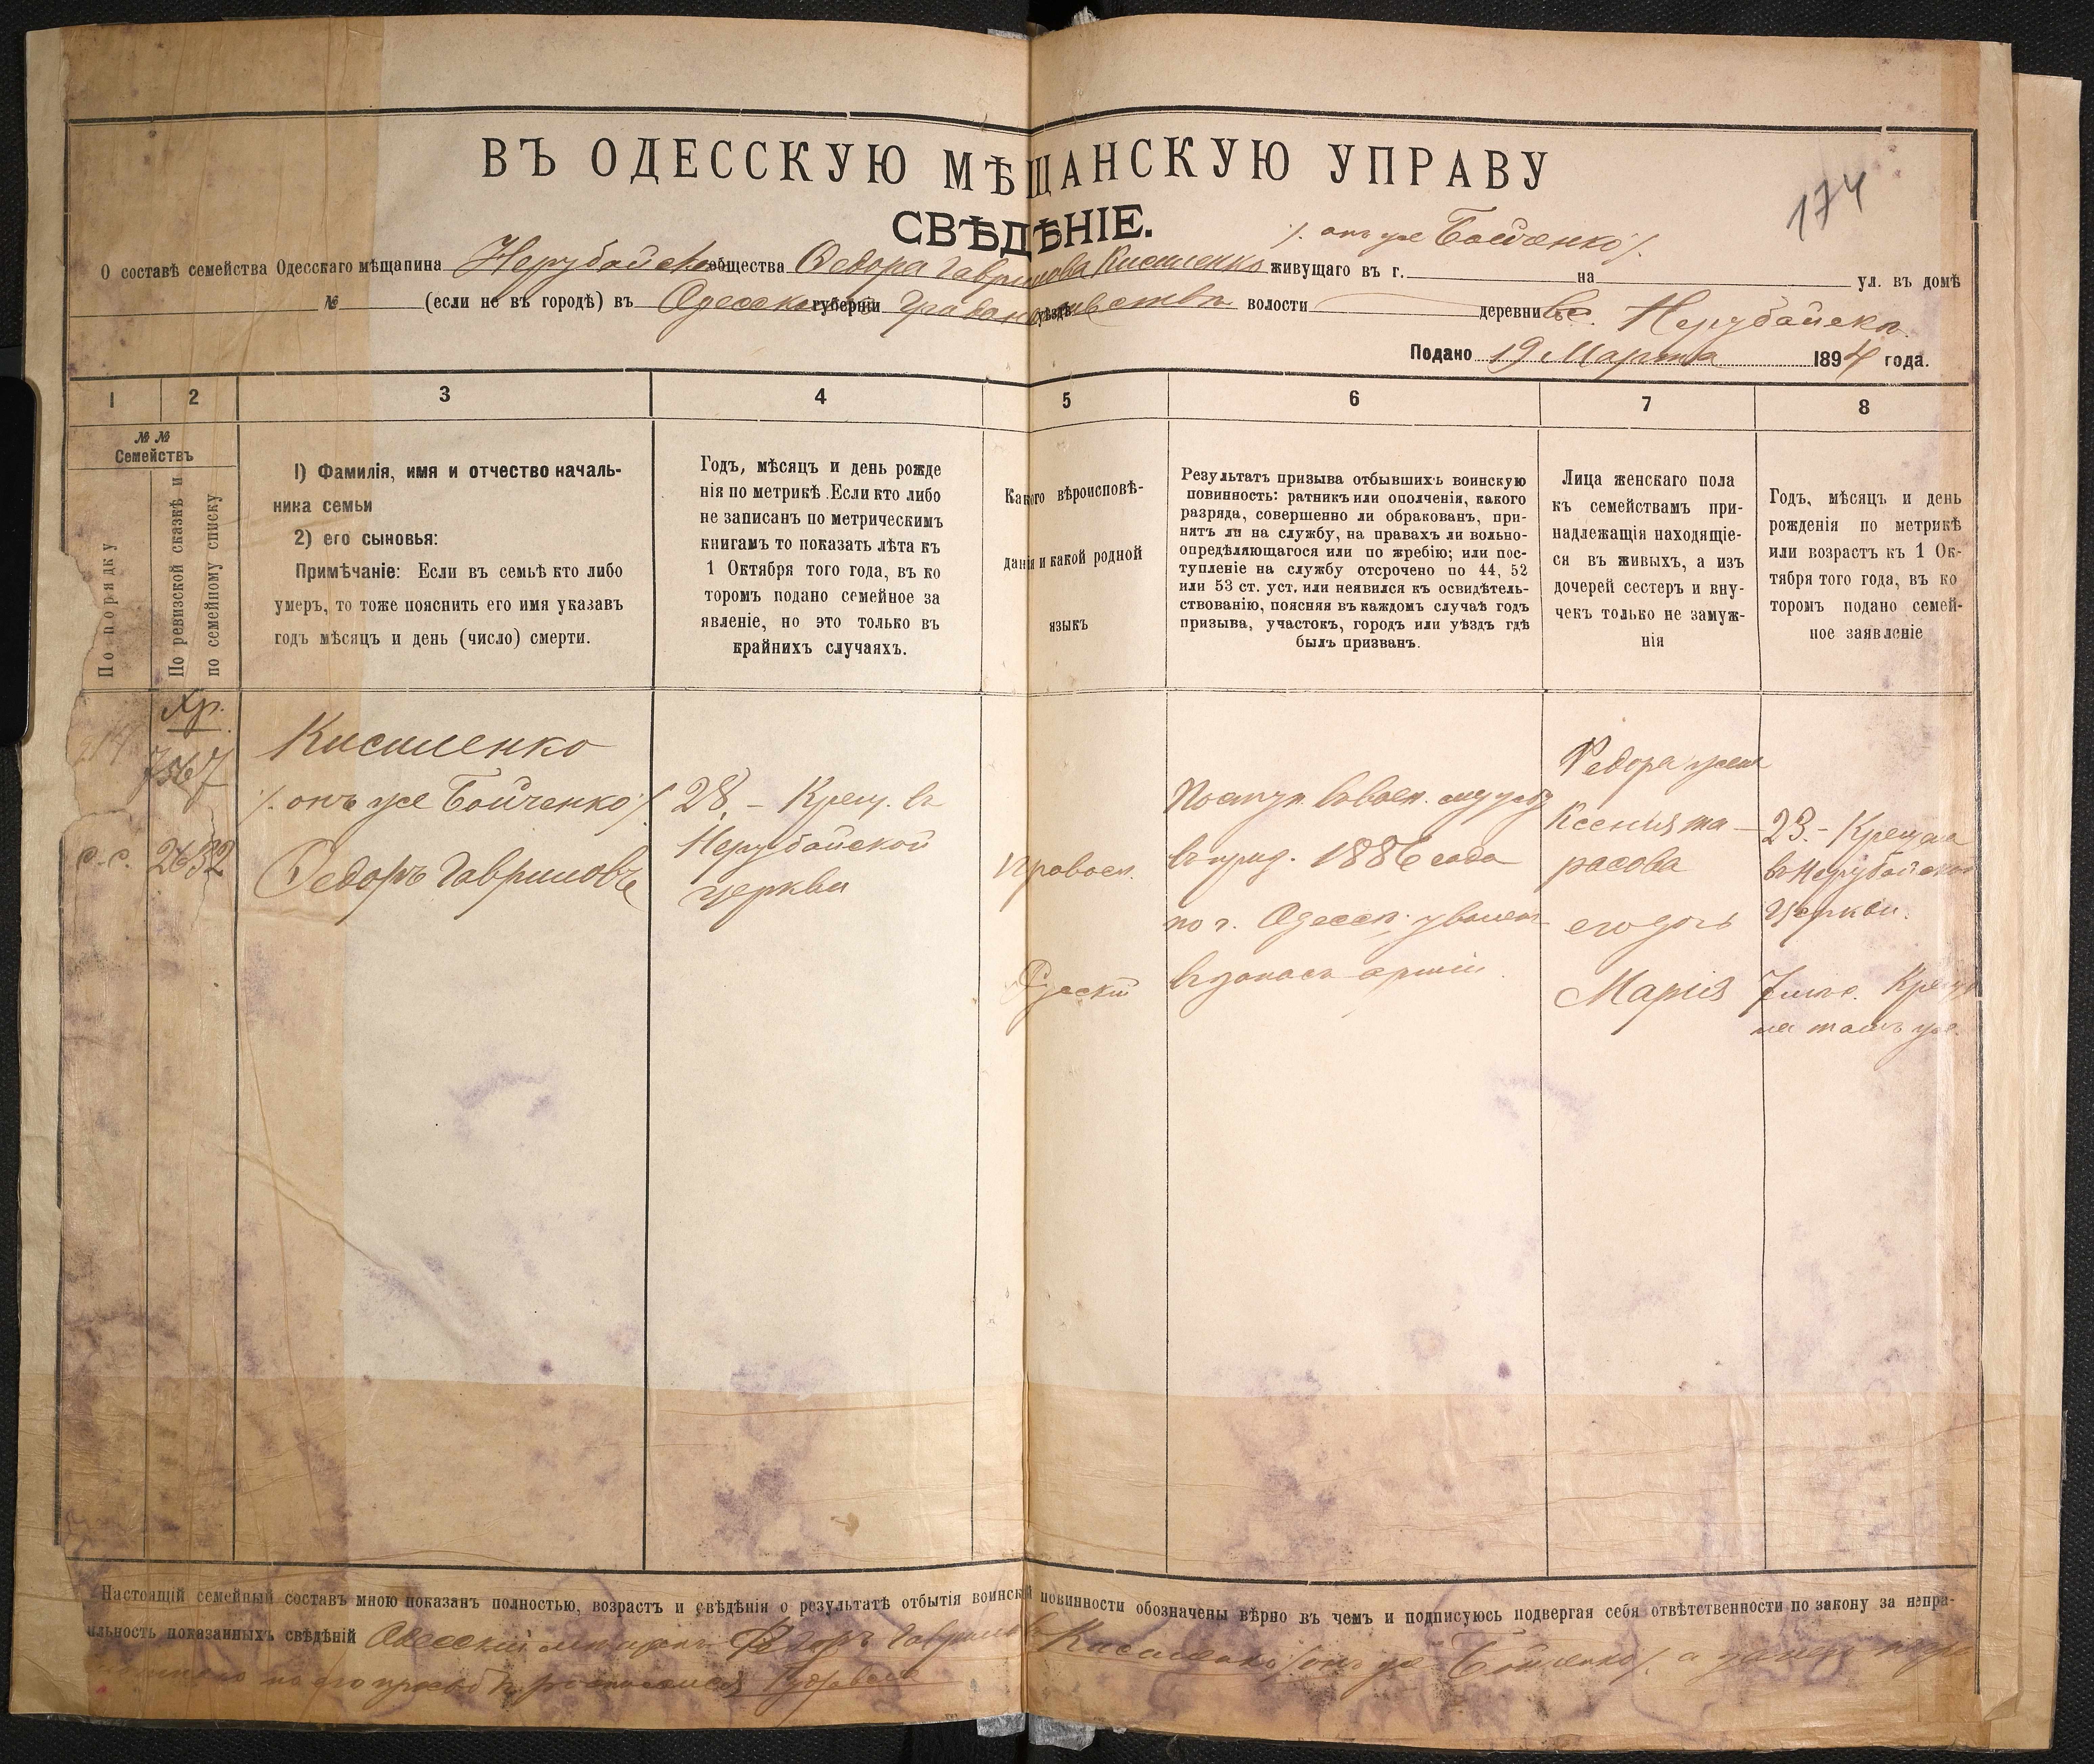 ВЪ ОДЕССКУЮ МѢЩАНСКУЮ УПРАВУ
174
СВѢДѢНІЕ.
/. онъ же Бойченко /.
О составѣ семейства Одесскаго мѣщанина Нерубайск. общества Ѳедора Гаврилова Кисиленко живущаго въ г. на ул. въ домѣ
№ (если не въ городѣ) въ Одесск. губерніи Градоначальства уѣзда волости деревни с. Нерубайска
Подано 19 Марта 1894 года.
1 2 3 4 5 6 7 8
№ №
Семействъ
По порядку
По ревизской сказкѣ и
по семейному списку
1) Фамилія, имя и отчество началь-
ника семьи
2) его сыновья:
Примѣчаніе: Если въ семьѣ кто либо
умеръ, то тоже пояснить его имя указавъ
годъ мѣсяцъ и день (число) смерти.
Годъ, мѣсяцъ и день рожде
нія по метрикѣ. Если кто либо
не записанъ по метрическимъ
книгамъ то показать лѣта къ
1 Октября того года, въ ко
торомъ подано семейное за
явленіе, но это только въ
крайнихъ случаяхъ.
Какого вѣроисповѣ-
данія и какой родной
языкъ
Результатъ призыва отбывшихъ воинскую
повинность: ратникъ или ополченія, какого
разряда, совершенно ли обракованъ, при-
нятъ ли на службу, на правахъ ли вольно-
опредѣляющагося или по жребію; или пос-
тупленіе на службу отсрочено по 44, 52
или 53 ст. уст. или неявился къ освидѣтель-
ствованію, поясняя въ каждомъ случаѣ годъ
призыва, участокъ, городъ или уѣздъ гдѣ
былъ призванъ.
Лица женскаго пола
къ семействамъ при-
надлежащія находящіе-
ся въ живыхъ, а изъ
дочерей сестеръ и вну-
чекъ только не замуж-
нія
Годъ, мѣсяцъ и день
рожденія по метрикѣ
или возрастъ къ 1 Ок-
тября того года, въ ко
торомъ подано семей-
ное заявленіе
Хр.
7567
с.-с. 2632
Кисиленко
/. онъ же Бойченко /.
Ѳедоръ Гавриловъ
28 - Крещ. въ
Нерубайской
церкви
Правосл.
Русскій
Поступ. въ воен. службу
въ призд. 1886 года
по г. Одессѣ. уволен
въ запасъ арміи.
Федора жена
Ксенія Та-
расова
его дочь
Марія
23. - Крещена
въ Нерубайской
Церкви.
7 мѣс. Креще
на тамъ же.
Настоящій семейный составъ мною показанъ полностью, возрастъ и свѣдѣнія о результатѣ отбытія воинской повинности обозначены вѣрно въ чемъ и подписуюсь подвергая себя отвѣтственности по закону за непра-
ильность показанныхъ свѣдѣній Одесскій мѣщанинъ Ѳедоръ Гавриловъ Кисиленко /онъ же Бойченко/. а за него негра
мотнаго по его просьбѣ росписался